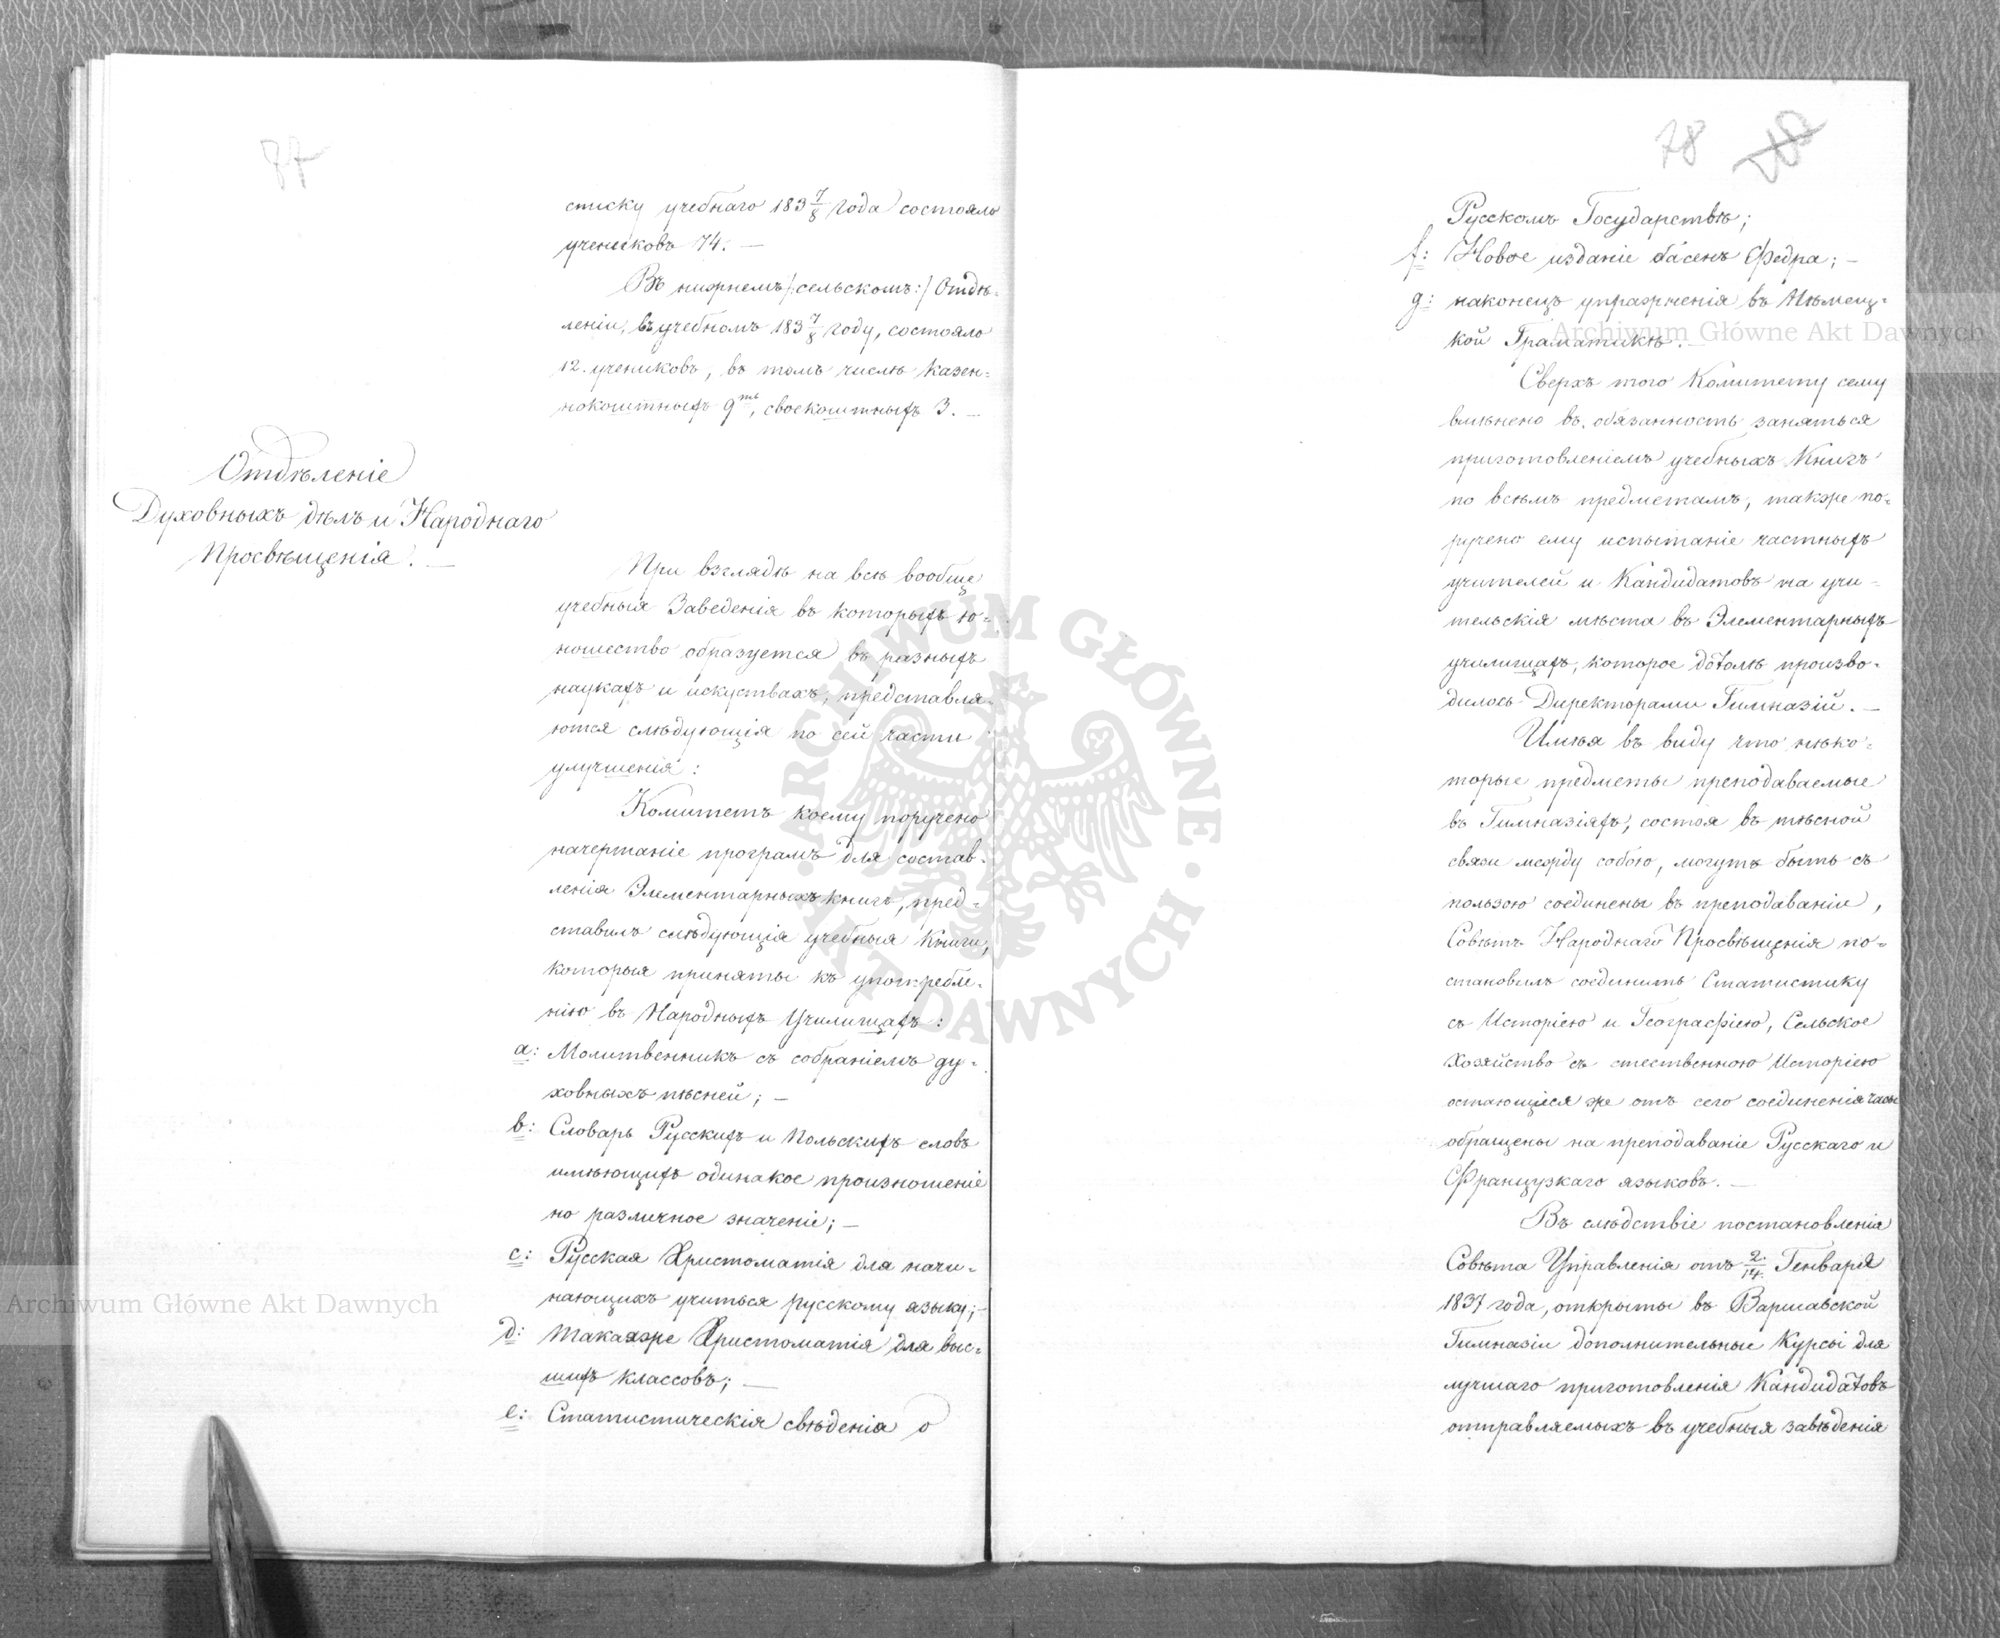 77
списку учебнаго 183 7/8 года состояло
учениковъ 74. —
Въ нижнемъ /:сельскомъ:/ Отдѣ-
леніи, въ учебномъ 183 7/8 году, состояло
12. учениковъ, въ томъ числѣ казен-
нокоштныхъ 9ть, своекоштныхъ 3. —
Отдѣленіе
Духовныхъ дѣлъ и Народнаго
Просвѣщенія. —
При взглядѣ на всѣ вообще
учебныя Заведенія въ которыхъ ю-
ношество образуется въ разныхъ
наукахъ и искуствахъ, представля-
ются слѣдующія по сей части
улучшенія:
Комитетъ коему поручено
начертаніе програмъ для состав-
ленія Элементарныхъ книгъ, пред-
ставилъ слѣдующія учебныя Книги,
которыя приняты къ употребле-
нію въ Народныхъ Училищахъ:
a: Молитвенникъ съ собраніемъ ду-
ховныхъ пѣсней; —
b: Словарь Русскихъ и Польскихъ словъ
имѣющихъ одинакое произношеніе
но различное значеніе; —
c: Русская Христоматія для начи-
нающихъ учиться русскому языку; —
d: Такаяже Христоматія для выс-
шихъ классовъ; —
e: Статистическія свѣденія о
78
Русскомъ Государствѣ;
f: Новое изданіе басенъ Федра; —
g: наконецъ упражненія въ Нѣмец-
кой Граматикѣ. —
Сверхъ того Комитету сему
вмѣнено въ обязанность заняться
приготовленіемъ учебныхъ Книгъ
по всѣмъ предметамъ, также по-
ручено ему испытаніе частныхъ
учителей и Кандидатовъ на учи-
тельскія мѣста въ Элементарныхъ
училищахъ, которое дотолѣ произво-
дилось Директорами Гимназій. —
Имѣя въ виду что нѣко-
торые предметы преподаваемые
въ Гимназіяхъ, состоя въ тѣсной
связи между собою, могутъ быть съ
пользою соединены въ преподаваніи,
Совѣтъ Народнаго Просвѣщенія по-
становилъ соединить Статистику
съ Исторіею и Географіею, Сельское
Хозяйство съ стественною Исторіею
остающіеся же отъ сего соединенія часы
обращены на преподаваніе Русскаго и
Французкаго языковъ. —
Въ слѣдствіе постановленія
Совѣта Управленія отъ 2/14. Генваря
1837 года, открыты въ Варшавской
Гимназіи дополнительные Курсы для
лучшаго приготовленія Кандидатовъ
отправляемыхъ въ учебныя завѣденія
Archiwum Główne Akt Dawnych
Archiwum Główne Akt Dawnych
ARCHIWUM GŁÓWNE AKT DAWNYCH